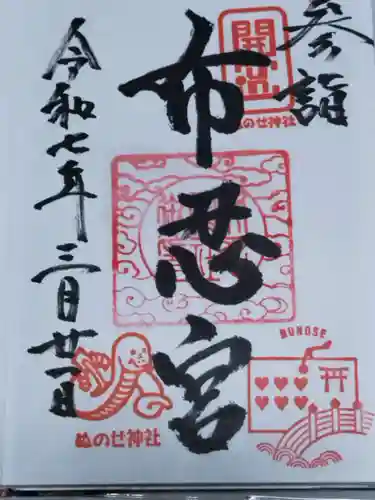 参詣
開運
ぬのせ神社
布忍宮
NUNOSE
令和七年三月廿一日
ぬのせ神社